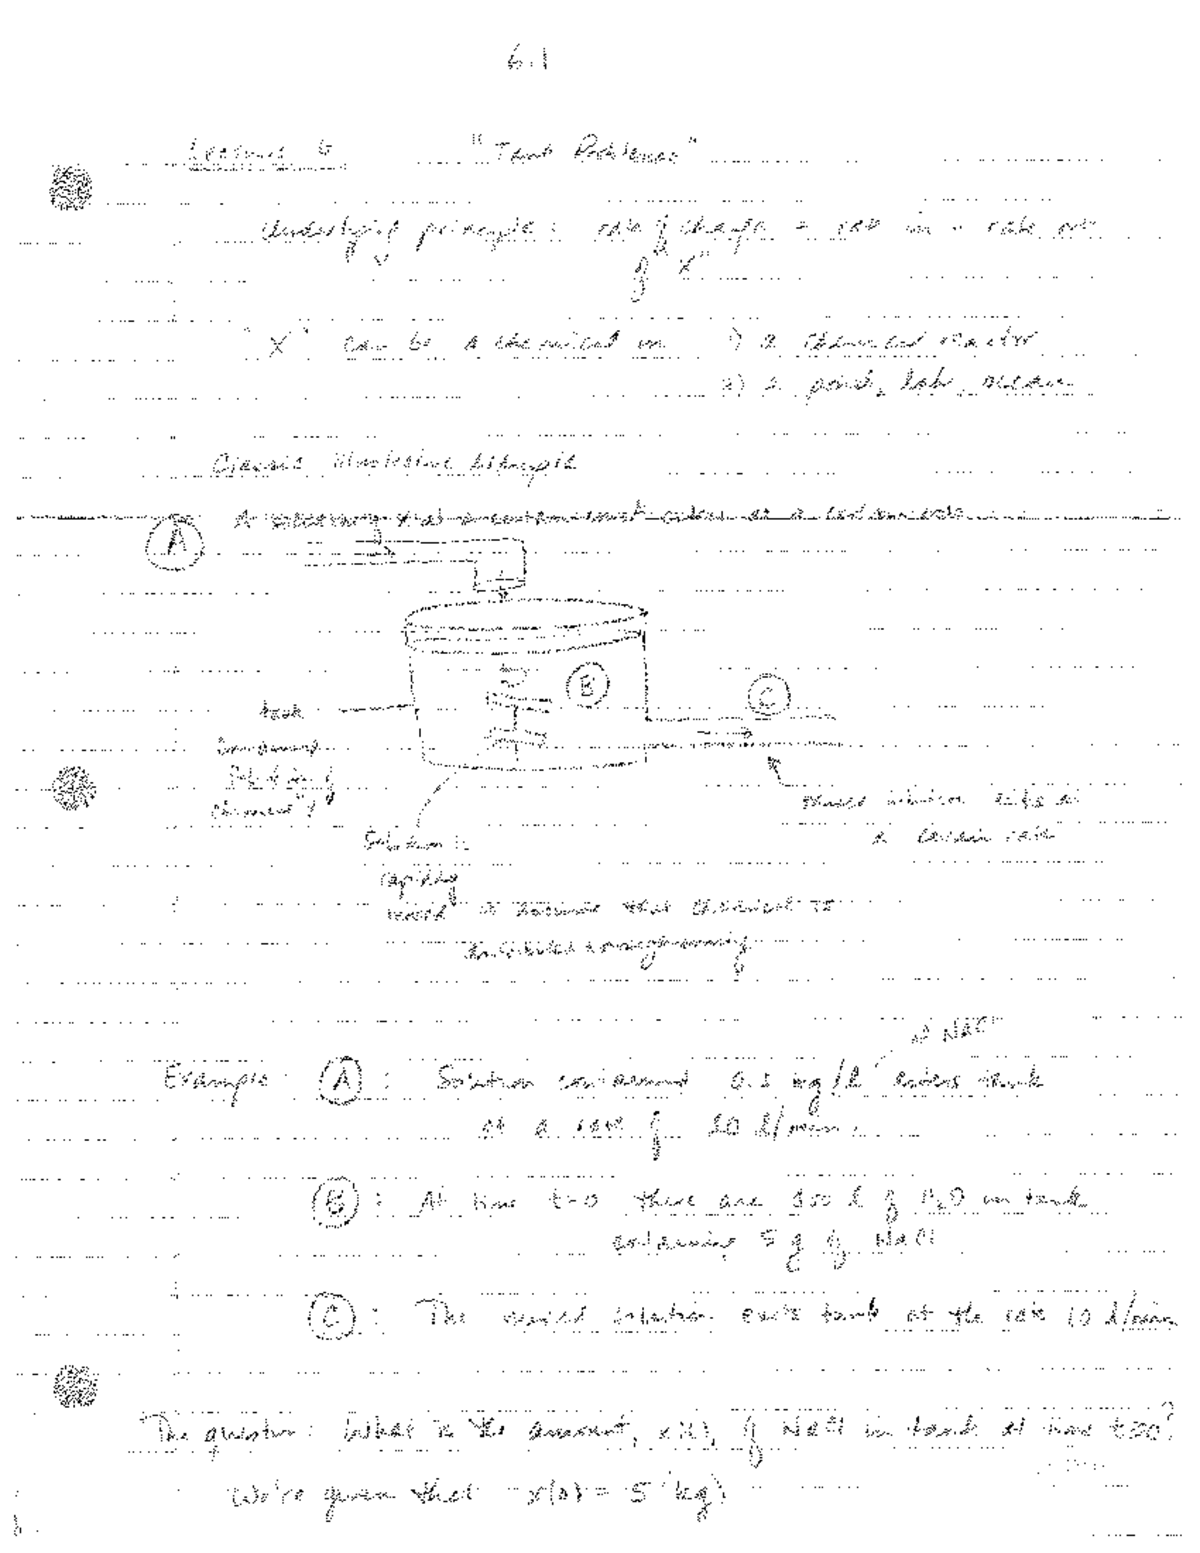 6.1
Lecture 6 "Tank Problems"
Underlying principle: rate of change = rate in - rate out
of "X"
"X" can be a chemical in 1) a chemical reactor
2) a pond, lake, ocean
Classic Illustrative Example
A that a contaminant at a certain rate
A
B
C
tank
containing
chemical
mixed solution exits at
a certain rate
Solution is
rapidly
mixed assume that chemical is
distributed homogeneously
of NaCl
Example: A : Solution containing kg/l enters tank
at a rate of l/min.
B : At time t=0 there are l of H2O in tank
containing 5 g of NaCl
C : The mixed solution exits tank at the rate 10 l/min
The question: What is the amount, x(t), of NaCl in tank at time t≥0?
We're given that x(0) = 5 kg;